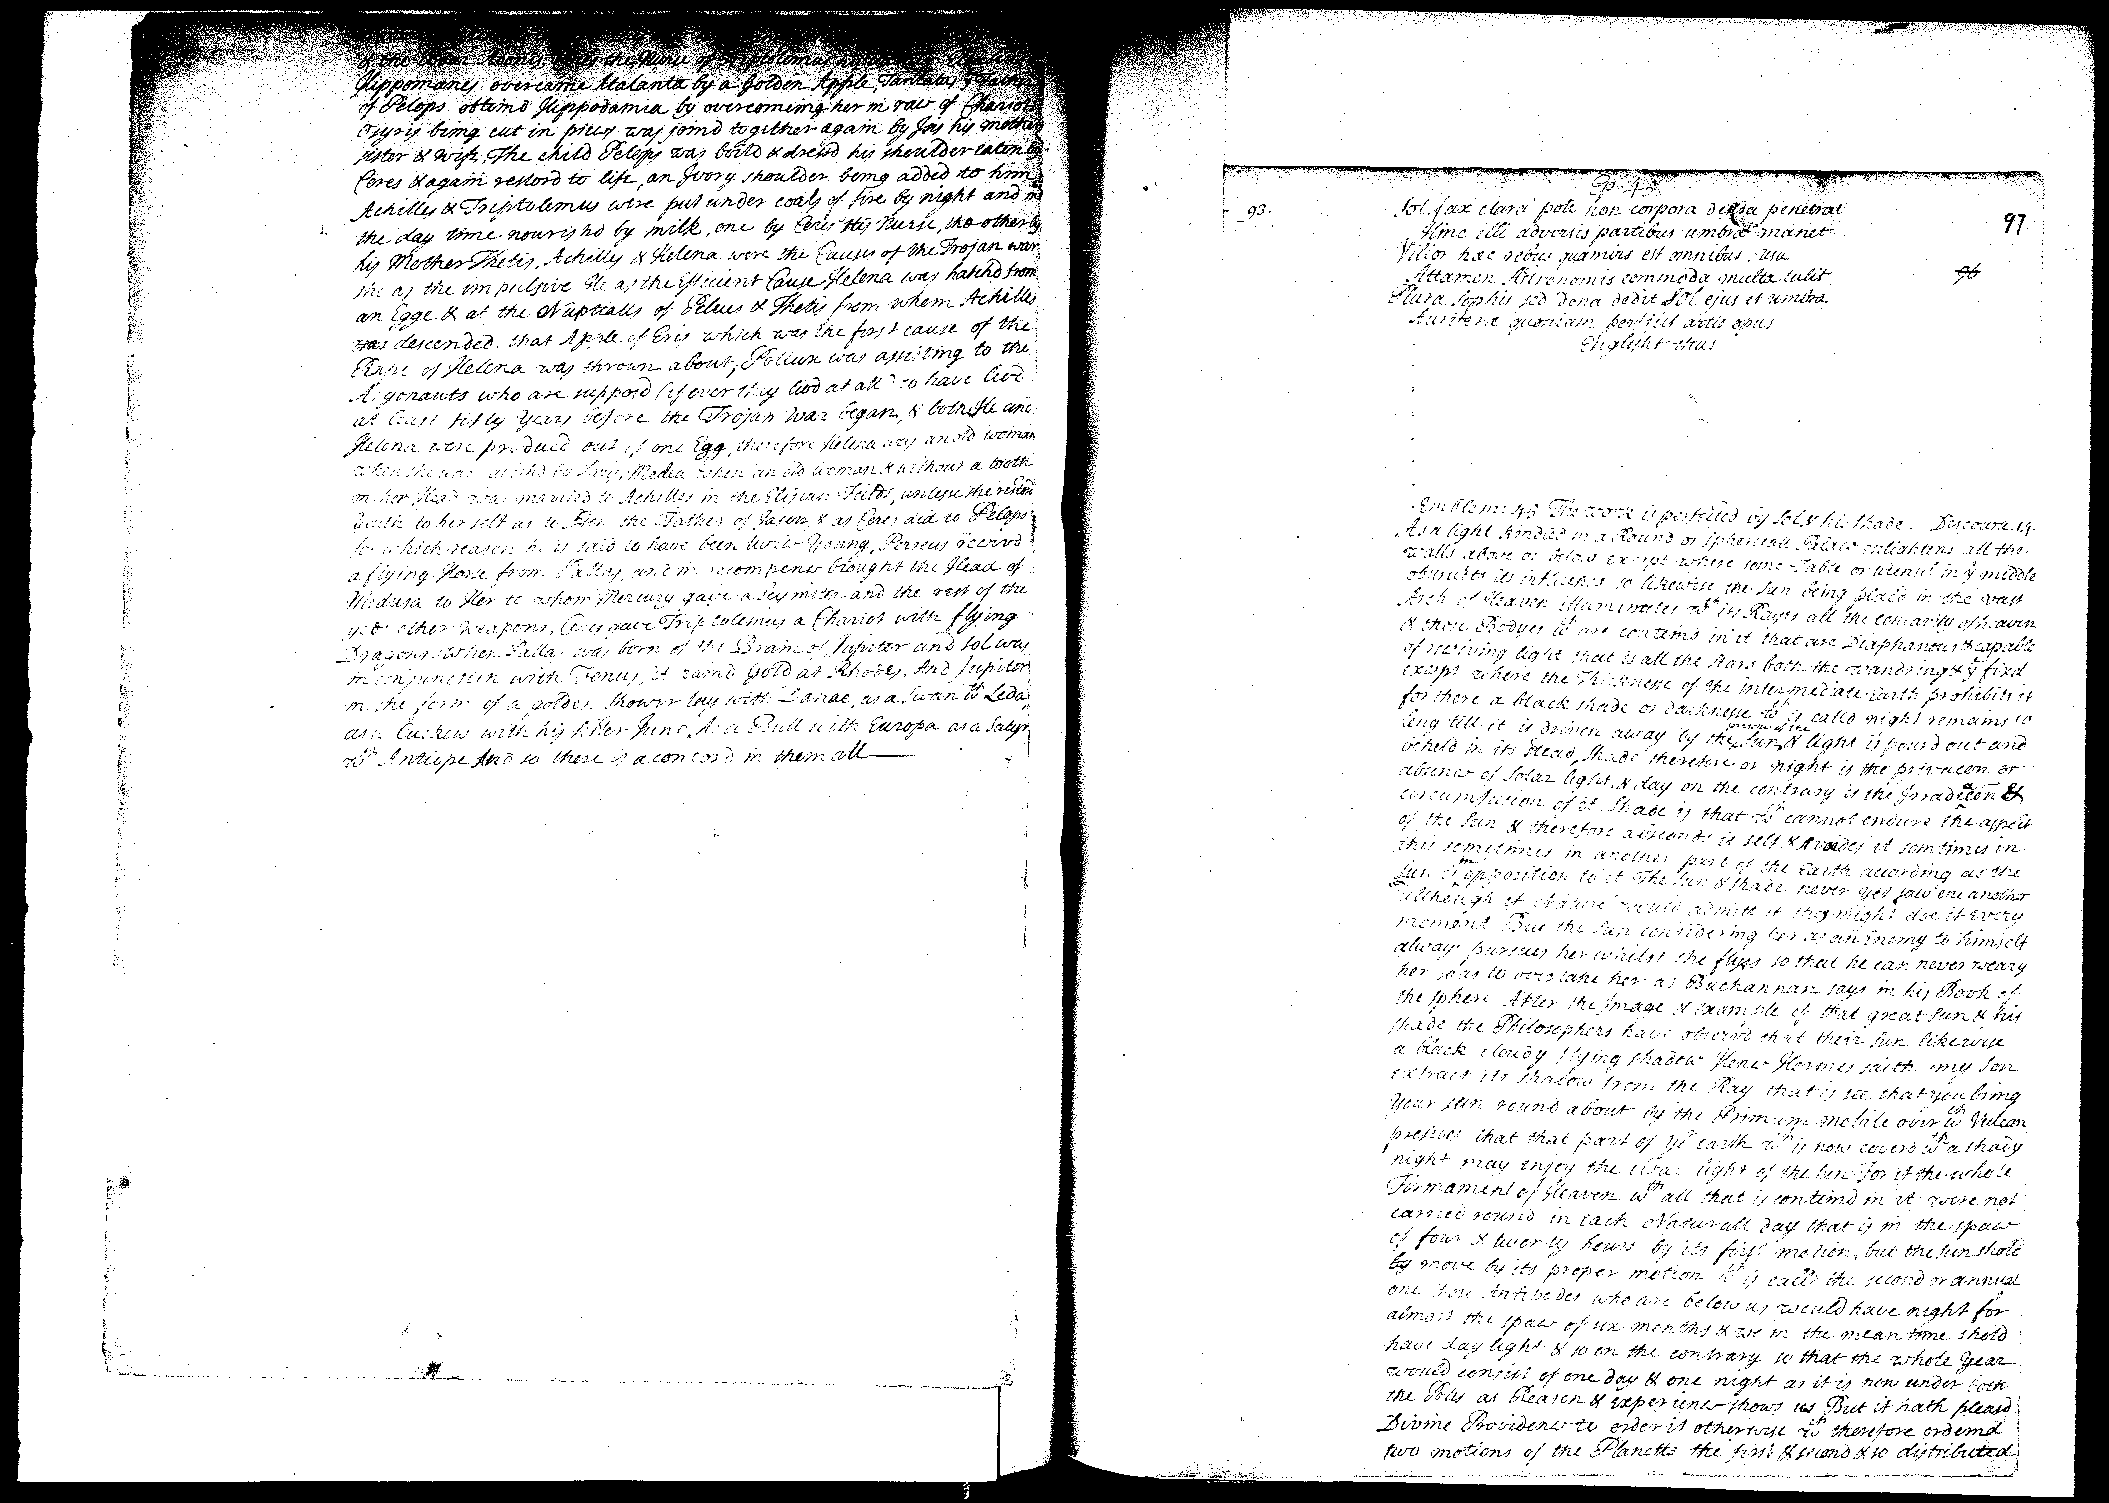 Hippomanes overcame Atalanta by a Golden Apple, Tantalus
of Pelops obtaind Hippodamia by overcomeing her in race of Chariot
Osyris being cut in pieces was joind together again by Isis his mother
sister & wife, The child Pelops was boild & dressd his shoulder eaten by
Ceres & again restord to life, an Ivory shoulder being added to him
Achilles & Triptolemus were put under coals of fire by night and in
the day time nourishd by milk, one by Ceres his Nurse, the other by
his Mother Thetis, Achilles & Helena were the Causes of the Trojan war
she as the impulsive He as the Efficient Cause Helena was hatchd from
an Egge & at the Nuptialls of Peleus & Thetis from whom Achilles
was descended that Apple of Eris which was the first cause of the
Rape of Helena was thrown about, Pollux was assisting to the
Argonauts who are supposd (if ever they livd at all) to have livd
at least fifty Years before the Trojan War began, & both He and
Helena were producd out of one Egg, therefore Helena was an old woman
when she was by Paris, Medea when an old woman & without a tooth
in her Head was married to Achilles in the Elisian Fields, unlesse she restord
Youth to her self as to Æson the Father of Jason, & as Ceres did to Pelops
for which reason he is said to have been twice Young, Perseus receivd
a flying Horse from Pallas, and in recompence brought the Head of
Medusa to Her to whom Mercury gave a Seymitar and the rest of the
gods other weapons, Ceres gave Triptolemus a Chariot with flying
Dragons when Pallas was born of the Brain of Jupiter and Sol was
in conjunction with Venus, it raind Gold at Rhodes, And Jupiter
in the form of a golden shower lay with Danae, as a Swan wth Leda,
as a Cuckow with his sister Juno, As a Bull with Europa as a Satyr
wth Antiope And so there is a concord in them all
93.
97
96
Sol fax clara poli non corpora densa penetrat
Hinc illi adversis partibus umbra manet
Vilior hæc rebus quamvis est omnibus, usu
Attamen Astronomis commoda multa tulit
Plura Sophis sed dona dedit SOL ejus et umbra
Auriferæ quoniam perficit artis opus
Englisht thus
Emblem 45 The work is perfected by Sol & his shade. Discourse 45
As a light kindled in a Round or Spherical Palace enlightens all the
walls above or below except where some Table or utensil in ye middle
obstructs its influence so likewise the Sun being placd in the vast
Arch of Heaven illuminates wth its Rayes all the concavity of heaven
& those Bodyes wch are containd in it that are Diaphanous & capable
of receiving light that is all the stars both the wandring & ye fixd
except where the Thicknesse of the intermediate Earth prohibits it
for there a black shade or darknesse wch is called night remains so
long till it is driven away by the Sun & light is pourd out and
beheld in its stead, Shade therefore or night is the privacon or
absence of Solar light, & day on the contrary is the Irradiacon &
circumfusion of it Shade is that wch cannot endure the aspect
of the Sun & therefore absconds it self & avoides it somtimes in
this sometimes in another part of the Earth according as the
Sun is in opposition to it The Sun & shade never yet saw one another
although if nature would admitt it they might doe it every
moment But the Sun considering her as an Enemy to himself
alway pursues her whilst she flyes so that he can never weary
her so as to overtake her as Buchannan says in his Book of
the sphere After the Image & example of that great Sun & his
shade the Philosophers have observd that their Sun likewise
a black cloudy flying shadow Hence Hermes saith my Son
extract its shadow from the Ray that is see that you bring
Your sun round about by the Primum mobile over wch Vulcan
presides that that part of ye earth wch is now coverd wth a shady
night may enjoy the clear light of the Sun For if the whole
Firmament of Heaven wth all that is containd in it were not
carried round in each Naturall day that is in the space
of four & twenty hours by its first motion, but the Sun shold
by move by its proper motion wch is calld the second or annual
one those Antipodes who are below us would have night for
almost the space of six months & we in the mean time shold
have day light & so on the contrary so that the whole Year
would consist of one day & one night as it is now under both
the Poles as Reason & experience shows us But it hath pleasd
Divine Providence to order it otherwise wch therefore ordeind
two motions of the Planetts the first & second & so distributed